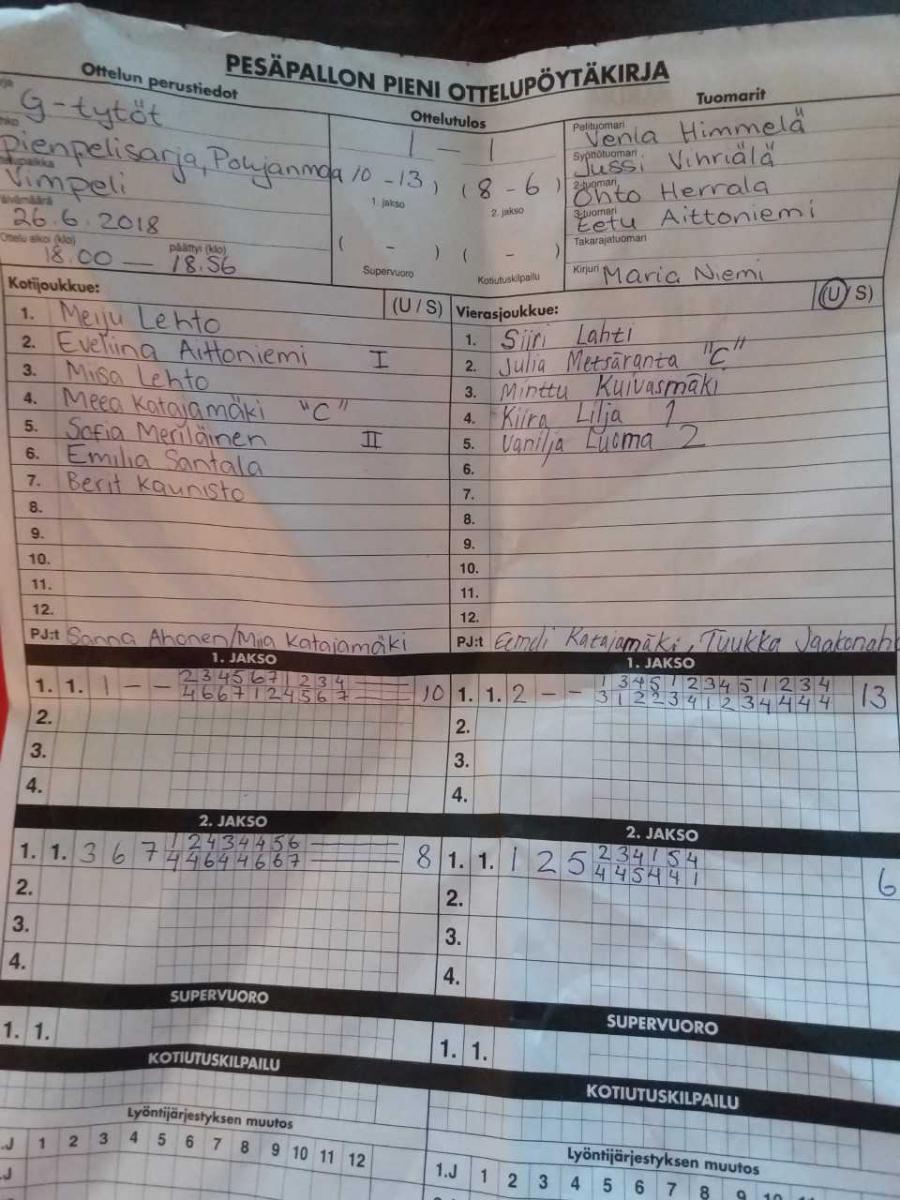 PESÄPALLON PIENI OTTELUPÖYTÄKIRJA
Ottelun perustiedot
G-tytöt
Pienpelisarja, Pohjanmaa
Vimpeli
26.6.2018
Ottelu alkoi (klo) päättyi (klo)
18.00 — 18.56
Ottelutulos
1 - 1
10 - 13) (8 - 6)
1. jakso 2. jakso
( - ) ( - )
Supervuoro Kotiutuskilpailu
Tuomarit
Pelituomari Venla Himmelä
Syöttötuomari Jussi Vihriälä
2-tuomari Ohto Herrala
3-tuomari Eetu Aittoniemi
Takarajatuomari
Kirjuri Maria Niemi
Kotijoukkue: (U / S)
1. Meiju Lehto
2. Eveliina Aittoniemi I
3. Misa Lehto
4. Meea Katajamäki "C"
5. Sofia Meriläinen II
6. Emilia Santala
7. Berit Kaunisto
8.
9.
10.
11.
12.
PJ:t Sanna Ahonen/Miia Katajamäki
Vierasjoukkue: (U / S)
1. Siiri Lahti
2. Julia Metsäranta "C"
3. Minttu Kuivasmäki
4. Kiira Lilja 1
5. Vanilja Luoma 2
6.
7.
8.
9.
10.
11.
12.
PJ:t Katajamäki, Tuukka
1. JAKSO
1. 1. 1 - - 2 3 4 5 6 7 1 2 3 4 10
4 6 6 7 1 2 4 5 6 7
2.
3.
4.
1. JAKSO
1. 1. 2 - - 1 3 4 5 1 2 3 4 5 1 2 3 4 13
3 1 2 2 3 4 1 2 3 4 4 4 4
2.
3.
4.
2. JAKSO
1. 1. 3 6 7 1 2 4 3 4 4 5 6 8
4 4 6 4 4 6 6 7
2.
3.
4.
2. JAKSO
1. 1. 1 2 5 2 3 4 1 5 4 6
4 4 5 4 4 1
2.
3.
4.
SUPERVUORO
1. 1.
SUPERVUORO
1. 1.
KOTIUTUSKILPAILU
KOTIUTUSKILPAILU
Lyöntijärjestyksen muutos
.J 1 2 3 4 5 6 7 8 9 10 11 12
.J
Lyöntijärjestyksen muutos
1.J 1 2 3 4 5 6 7 8 9 10 11